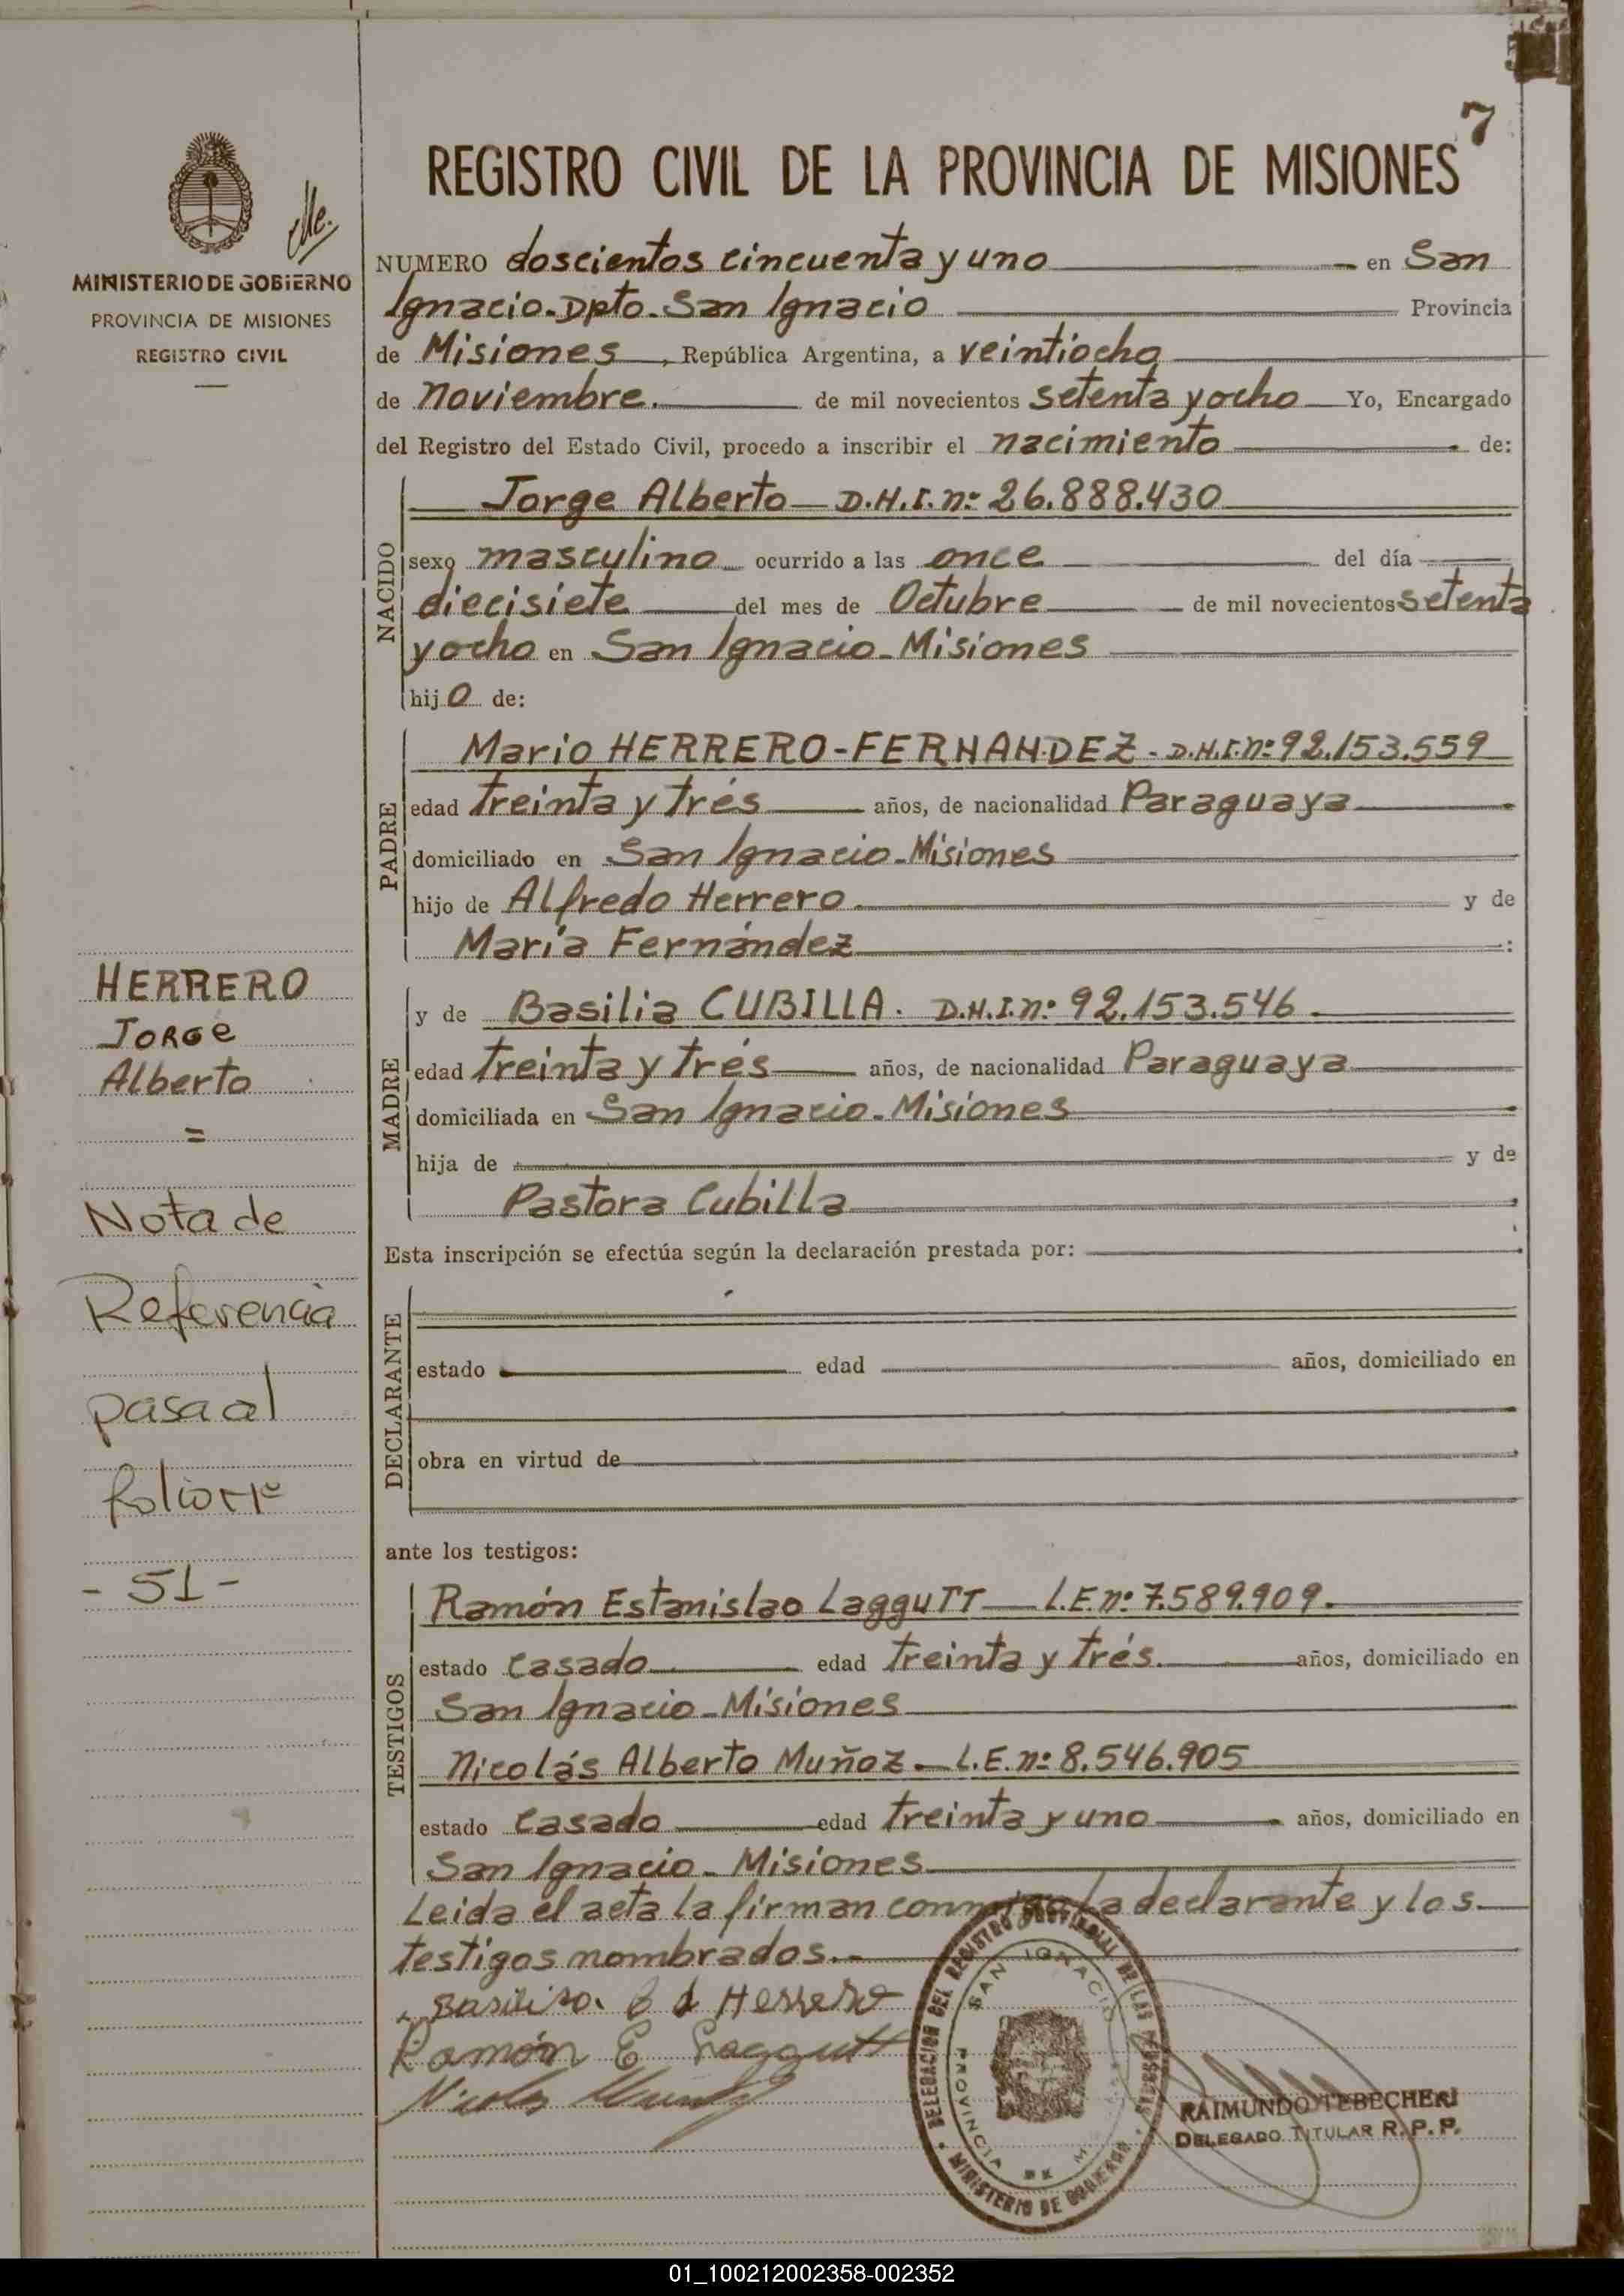 7
REGISTRO CIVIL DE LA PROVINCIA DE MISIONES
MINISTERIO DE GOBIERNO
PROVINCIA DE MISIONES
REGISTRO CIVIL
NUMERO doscientos cincuenta y uno en San
Ignacio-Dpto-San Ignacio Provincia
de Misiones, República Argentina, a veintiocho
de noviembre. de mil novecientos setenta y ocho Yo, Encargado
del Registro del Estado Civil, procedo a inscribir el nacimiento de:
NACIDO
Jorge Alberto - D.N.I. nº 26.888.430
sexo masculino ocurrido a las once del día
diecisiete del mes de Octubre de mil novecientos setenta
y ocho en San Ignacio-Misiones
hijo de:
PADRE
Mario HERRERO-FERNANDEZ - D.N.I. nº 92.153.559
edad treinta y trés años, de nacionalidad Paraguaya
domiciliado en San Ignacio-Misiones
hijo de Alfredo Herrero y de
María Fernández :
MADRE
y de Basilia CUBILLA. D.N.I. nº 92.153.546.
edad treinta y trés años, de nacionalidad Paraguaya
domiciliada en San Ignacio-Misiones
hija de y de
Pastora Cubilla
Esta inscripción se efectúa según la declaración prestada por:
DECLARANTE
estado edad años, domiciliado en
obra en virtud de
ante los testigos:
TESTIGOS
Ramón Estanislao Laggutt - L.E. nº 7.589.909.
estado casado edad treinta y trés. años, domiciliado en
San Ignacio-Misiones
Nicolás Alberto Muñoz - L.E. nº 8.546.905
estado casado edad treinta y uno años, domiciliado en
San Ignacio-Misiones
Leida el acta la firman conmigo la declarante y los
testigos nombrados.-
Ramón E Laggutt
DELEGACION DEL REGISTRO PROVINCIAL DE LAS PERSONAS
SAN IGNACIO
PROVINCIA DE
MINISTERIO DE GOBIERNO
RAIMUNDO TEBECHERI
DELEGADO TITULAR R. P. P.
HERRERO
Jorge
Alberto
=
Nota de
Referencia
pasa al
folio nº
- 51 -
01_100212002358-002352